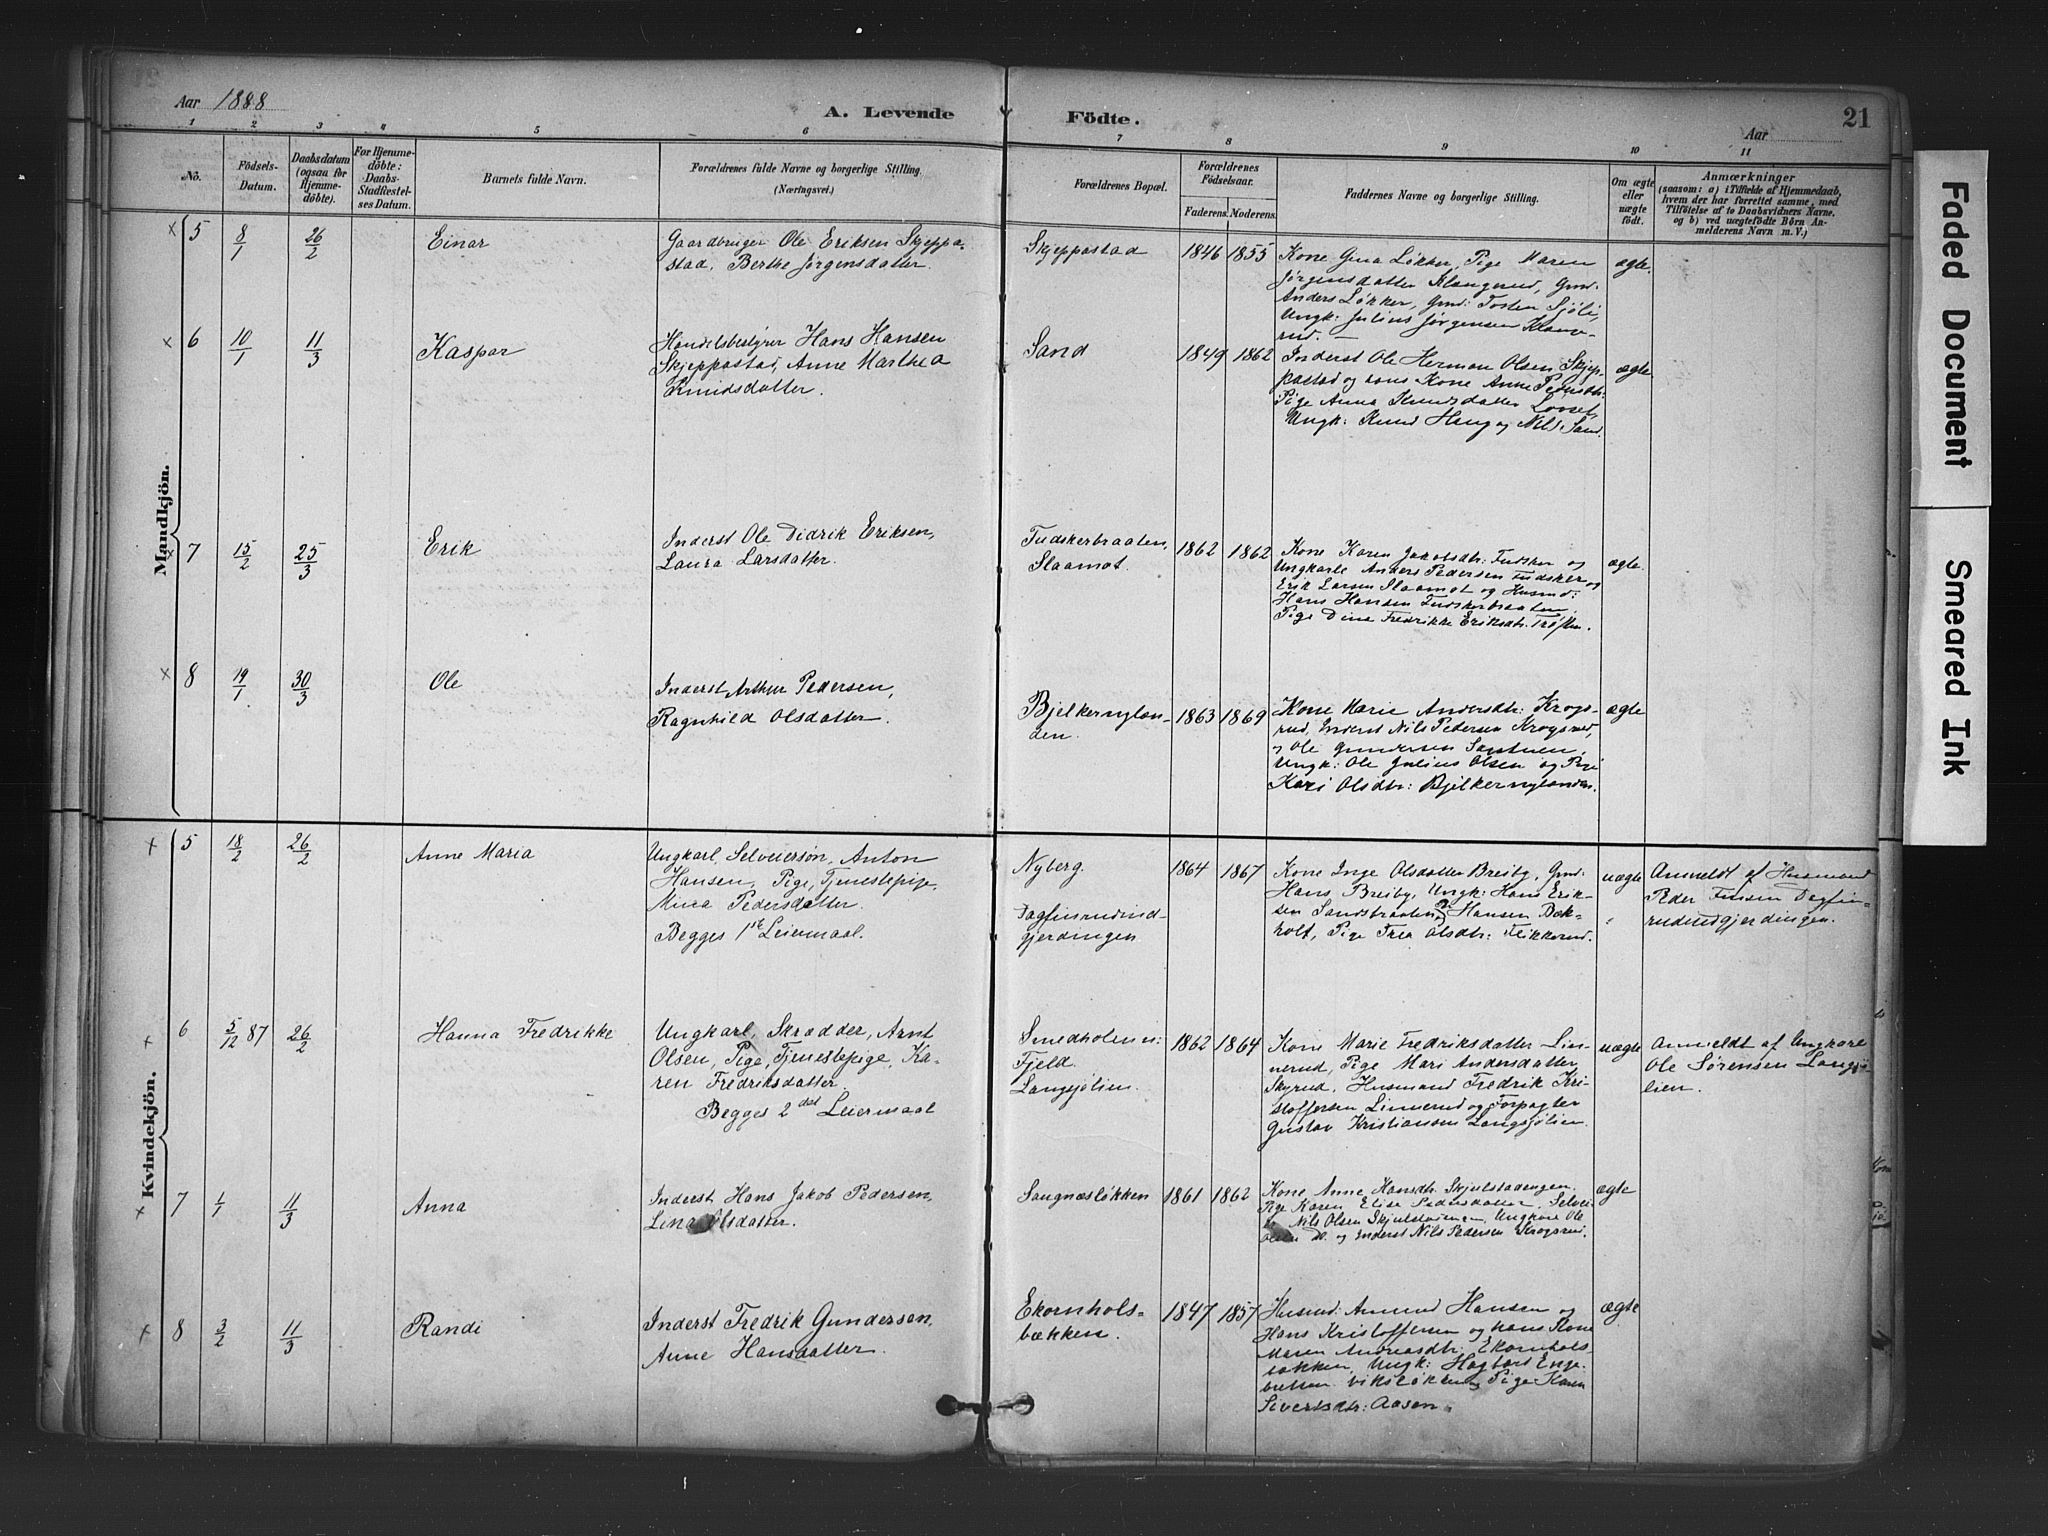 Aar 1888
A. Levende Födte.
Aar
21
1 2 3 4 5 6 7 8 9 10 11
No.
Födsels-
Datum.
Daabsdatum
(ogsaa for
Hjemme-
döbte).
For Hjemme-
döbte:
Daabs-
Stadfæstel-
ses Datum.
Barnets fulde Navn.
Forældrenes fulde Navne og borgerlige Stilling.
(Næringsvei.)
Forældrenes Bopæl.
Forældrenes
Födselsaar.
Faderens. Moderens.
Faddernes Navne og borgerlige Stilling.
Om ægte
eller
uægte
født.
Anmærkninger
(saasom: a) i Tilfælde af Hjemmedaab,
hvem der har forrettet samme, med
Tilföielse af to Daabsvidners Navne,
og b) ved uægtefödte Börn An-
melderens Navn m. V.)
Mandkjön.
× 5 8/1 26/2
Einar
Gaardbruger Ole Eriksen Skjeppe-
stad, Berthe Jørgensdatter.
Skjeppestad
1846 1855
Kone Gina Løkker, Pige Maren
Jørgensdatter Klangerud, Grd:
Anders Løkker, Grd: Tosten Sjøli,
Ungk: Julius Jørgensen Klange-
rud.
ægte.
× 6 10/1 11/3
Kaspar
Handelsbestyrer Hans Hansen
Skjeppestad, Anne Marthea
Knudsdatter.
Sand
1849 1862
Inderst Ole Herman Olsen Skjep-
pestad og hans Kone Anne Pedersdtr:
Pige Anna Knudsdatter
Ungk: Knud Haug og Nils Sand.
ægte
× 7 15/2 25/3
Erik
Inderst Ole Didrik Eriksen,
Laura Larsdatter.
Fudskerbraaten,
Slaamot.
1862 1862
Kone Karen Jakobsdtr: Fudsker og
Ungkarle Anders Pedersen Fudsker og
Erik Larsen Slaamot og Husmd:
Hans Hansen Fudskerbraaten,
Pige Dina Fredrikke Eriksdtr. Trøften.
ægte.
× 8 19/1 30/3
Ole
Inderst Arthur Pedersen,
Ragnhild Olsdatter.
Bjelkernylan-
den.
1863 1869
Kone Marie Andersdtr: Krogs-
rud, Inderst Nils Pedersen Krogsrud,
og Ole Gundersen
Ungk: Ole Julius Olsen og Pige
Kari Olsdtr: Bjelkernylanden.
ægte
Kvindekjön.
× 5 18/2 26/2
Anne Maria
Ungkarl, Selveiersøn, Anton
Hansen, Pige, Tjenestepige,
Mina Pedersdatter.
Begges 1ste Leiermaal.
Nyberg.
Dagfinrudind-
gjerdingen
1864 1867
Kone Inge Olsdatter Breiby, Grd:
Hans Breiby, Ungk: Hans Erik-
sen Sandsbraaten Hansen Bæk-
holt, Pige Olsdtr: Flikkerud.
uægte
Anmeldt af Husmand
Peder Dagfin-
rudindgjerdingen.
× 6 5/12 87 26/2
Hanna Fredrikke
Ungkarl, Skrædder, Arnt
Olsen, Pige, Tjenestepige, Ka-
ren Fredriksdatter.
Begges 2det Leiermaal
Smedholen u:
Fjeld.
Langsjølien.
1862 1864
Kone Marie Fredriksdatter Lin-
nerud, Pige Mari Andersdatter
Skyrud, Husmand Fredrik Kri-
stoffersen Linnerud og Forpagter
Gustav Kristiansen Langsjølien.
uægte
Anmeldt af Ungkarl
Ole Sørensen Langsjø-
lien.
× 7 1/1 11/3
Anna
Inderst Hans Jakob Pedersen,
Lina Olsdatter.
Sangnæsløkken
1861 1862
Kone Anne Hansdtr. Skjulstadengen,
Pige Karen Elise Pedersdatter, Selvei-
Nils Olsen Skjulstadengen, Ungkarl Ole
Olsen do. og Inderst Nils Pedersen Krogsrud.
ægte
× 8 3/2 11/3
Randi
Inderst Fredrik Gundersen,
Anne Hansdatter.
Ekornhols-
bækken.
1847 1857
Husmd: Amund Hansen og
Hans Kristoffersen og hans Kone
Maren Andreasdtr. Ekornhols-
bækken, Ungk: Hagbart Enge-
bretsen Viksløkken, Pige Karen
Sivertsdtr: Aasen.
ægte
Faded Document
Smeared Ink